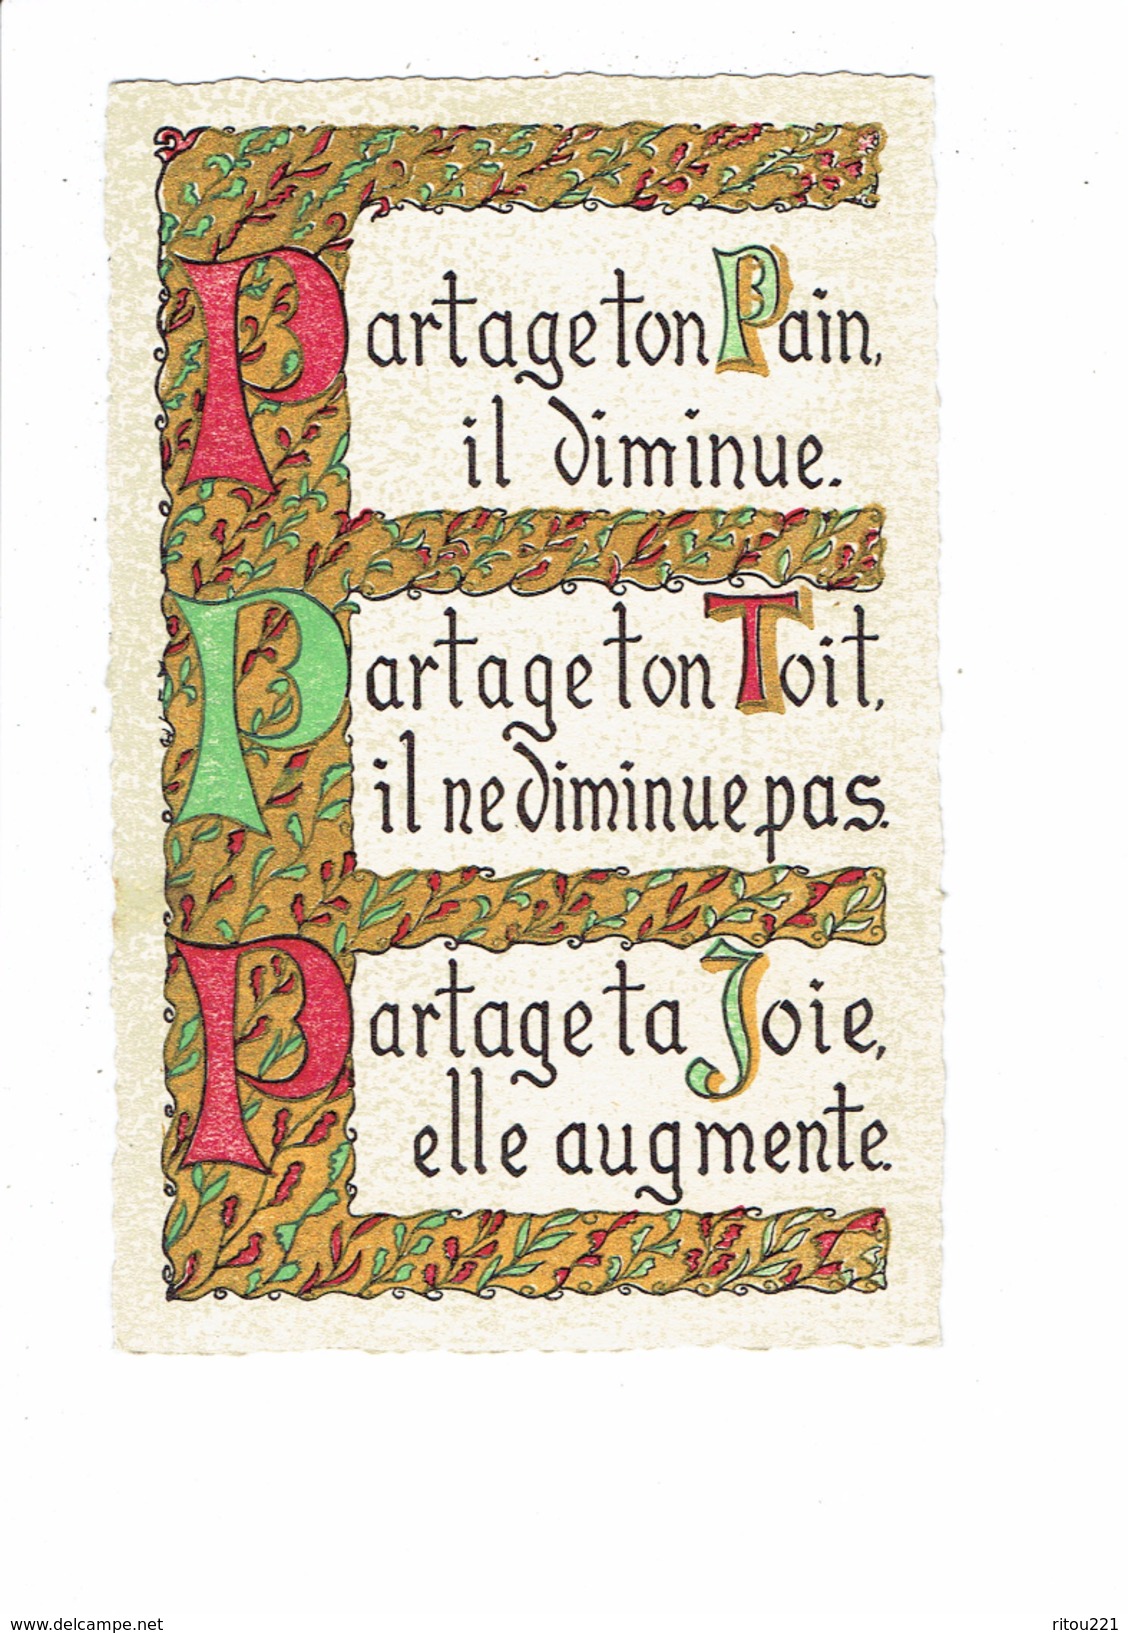 Partage ton Pain,
il diminue.
Partage ton Toit,
il ne diminue pas.
Partage ta Joie,
elle augmente.
www.delcampe.net
ritou221